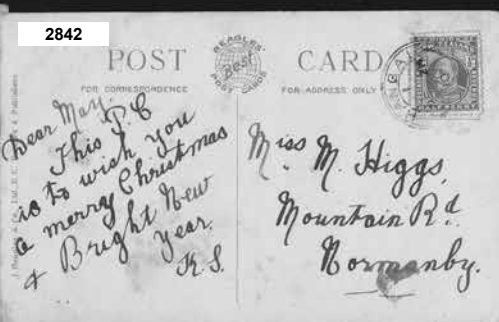 2842
POST CARD
BEAGLES'
Best
POST CARDS
FOR CORRESPONDENCE
FOR ADDRESS ONLY
Dear May.
This P.C
is to wish you
a merry Christmas
& Bright New
year.
K.S.
Miss M. Higgs,
Mountain Rd.
Normanby.